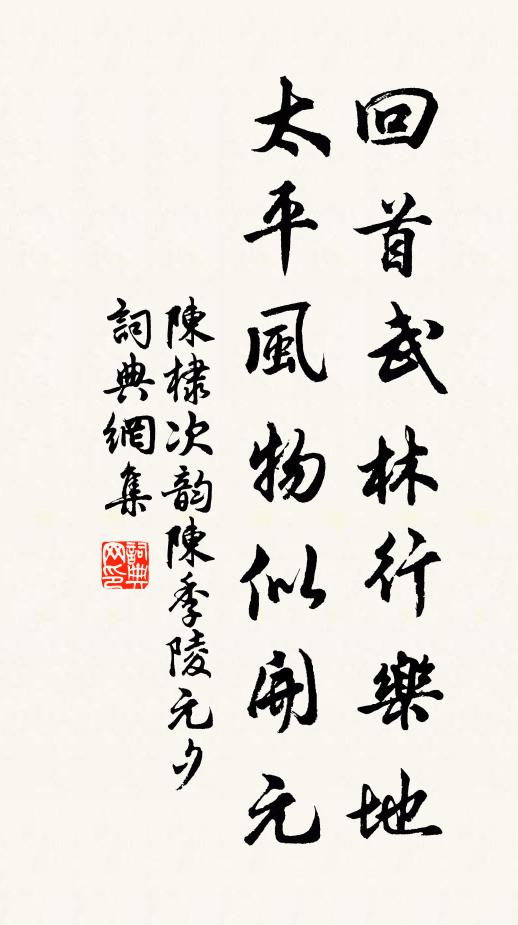 回首武林行樂地
太平風物似開元
陳棣次韵陳季陵元夕
詞典網集
詞典网印